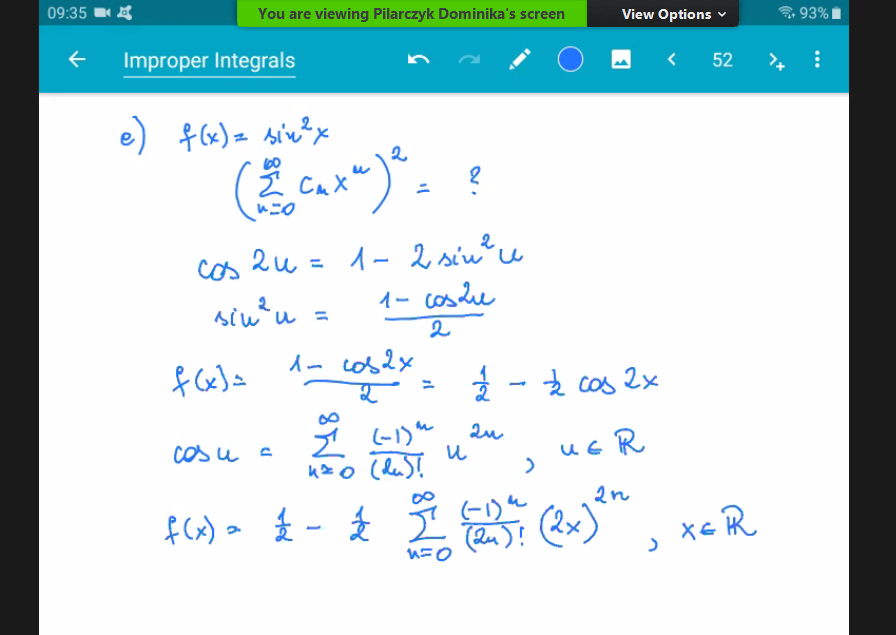 09:35 You are viewing Pilarczyk Dominika's screen View Options 93%
Improper Integrals 52
e) f(x) = sin²x
(∑_{n=0}^{∞} cₙ xⁿ)² = ?
cos 2u = 1 - 2 sin²u
sin²u = (1 - cos2u)/2
f(x) = (1 - cos2x)/2 = 1/2 - 1/2 cos 2x
cos u = ∑_{n=0}^{∞} (-1)ⁿ/(2n)! u²ⁿ, u ∈ ℝ
f(x) = 1/2 - 1/2 ∑_{n=0}^{∞} (-1)ⁿ/(2n)! (2x)²ⁿ, x ∈ ℝ